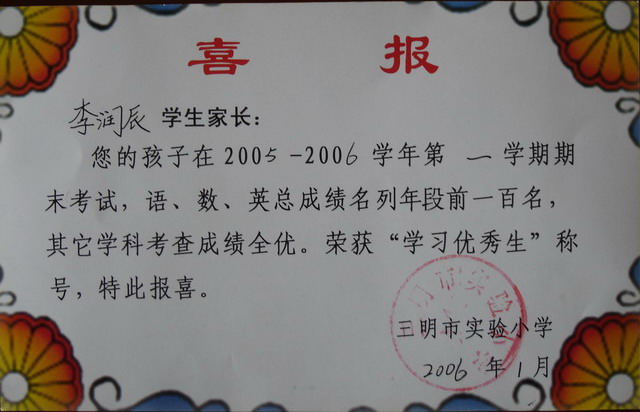 喜 报
李润辰 学生家长：
您的孩子在2005-2006学年第 一 学期期
末考试，语、数、英总成绩名列年段前一百名，
其它学科考查成绩全优。荣获“学习优秀生”称
号，特此报喜。
三明市实验小学
2006 年 1 月